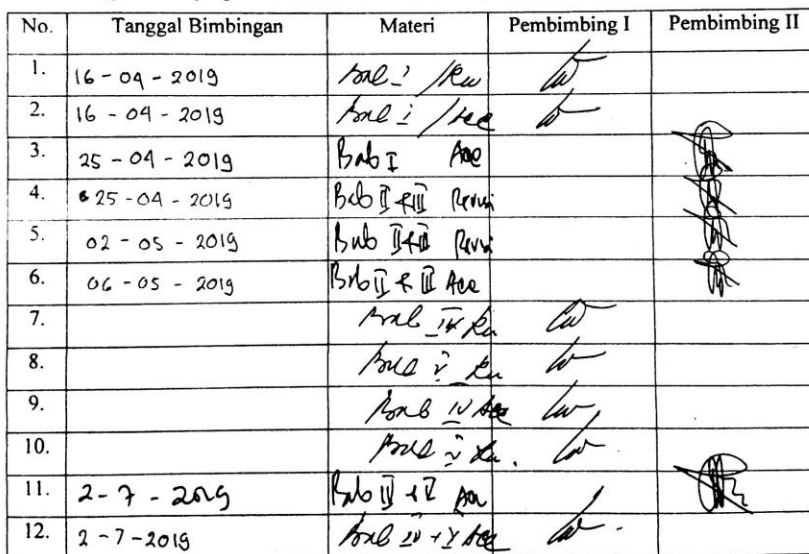 No. Tanggal Bimbingan Materi Pembimbing I Pembimbing II
1. 16-04-2019 Bab I /Rev
2. 16-04-2019 Bab I /Acc
3. 25-04-2019 Bab I Acc
4. 25-04-2019 Bab II & III Revisi
5. 02-05-2019 Bab II & III Revisi
6. 06-05-2019 Bab II & III Acc
7. Bab IV
8. Bab V
9. Bab IV Acc
10. Bab V
11. 2-7-2019 Bab
12. 2-7-2019 Bab IV + V Acc